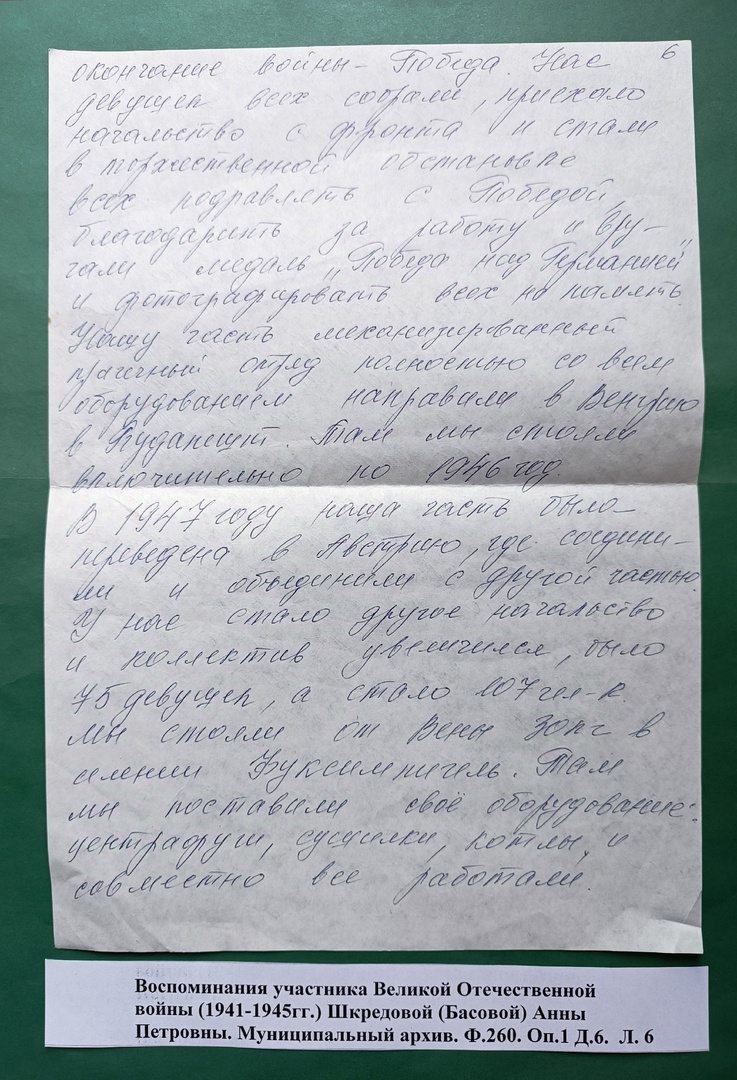 6
окончание войны – Победа. Нас
девушек всех собрали, приехало
начальство с фронта и стали
в торжественной обстановке
всех подравлять с Победой,
благодарить за работу и вру-
чали медаль „Победа над Германией"
и фотографировать всех на память.
Нашу часть механизированный
прачечный отряд полностью со всем
оборудованием направили в Венгрию
в Будапешт. Там мы стояли
включительно по 1946 год.
В 1947 году наша часть была
переведена в Австрию, где соедини-
ли и объединили с другой частью.
У нас стало другое начальство
и коллектив увеличился, было
75 девушек, а стало 107 чел-к.
Мы стояли от Вены 30 кг в
имении Фуксимпигель. Там
мы поставили своё оборудование:
центрафуги, сушилки, котлы, и
совместно все работали.
Воспоминания участника Великой Отечественной
войны (1941-1945гг.) Шкредовой (Басовой) Анны
Петровны. Муниципальный архив. Ф.260. Оп.1 Д.6. Л. 6